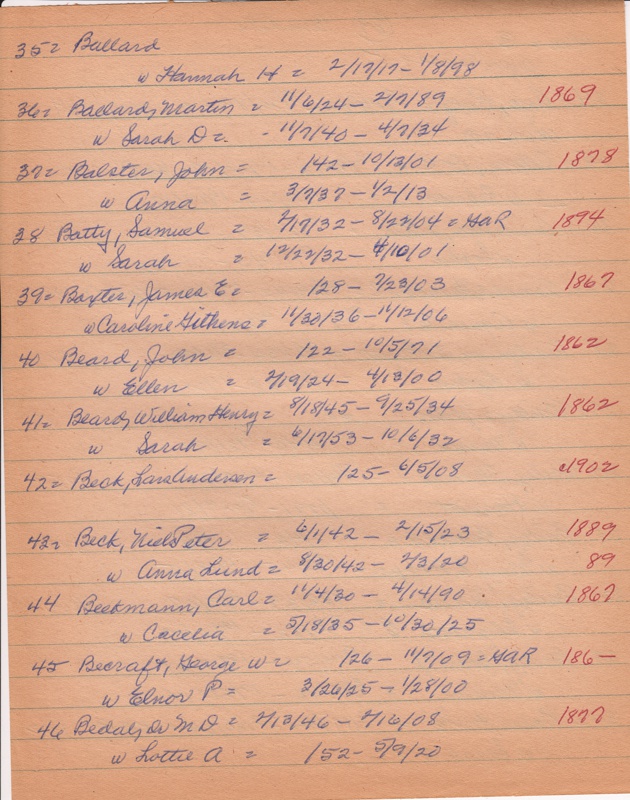 35= Ballard
w Hannah H = 2/17/17 - 1/8/98
36= Ballard, Martin = 11/6/24 - 2/7/89 1869
w Sarah D = - 11/7/40 - 4/7/34
37= Balster, John = /42 - 10/13/01 1878
w Anna = 3/7/37 - 1/2/13
38 Batty, Samuel = 2/17/32 - 8/22/04 = GAR 1894
w Sarah = 12/22/32 - 4/10/01
39= Baxter, James E = /28 - 7/23/03 1867
w Caroline Githens = 11/30/36 - 11/12/06
40 Beard, John = /22 - 10/5/71 1862
w Ellen = 2/19/24 - 4/13/00
41= Beard, William Henry = 8/18/45 - 9/25/34 1862
w Sarah = 6/17/53 - 10/6/32
42= Beck, Lars Andersen = /25 - 6/5/08 c1902
43= Beck, Niels Peter = 6/1/42 - 2/15/23 1889
w Anna Lund = 8/30/42 - 2/3/20 89
44 Beekmann, Carl = 11/4/30 - 4/14/90 . 1867
w Cacelia = 5/18/35 - 10/30/25
45 Becraft, George W = /26 - 11/7/09 = GAR 186-
w Elnor P = 3/26/25 - 1/28/00
46 Bedal, Dr M D = 2/13/46 - 2/16/08 1877
w Lottie A = /52 - 5/9/20